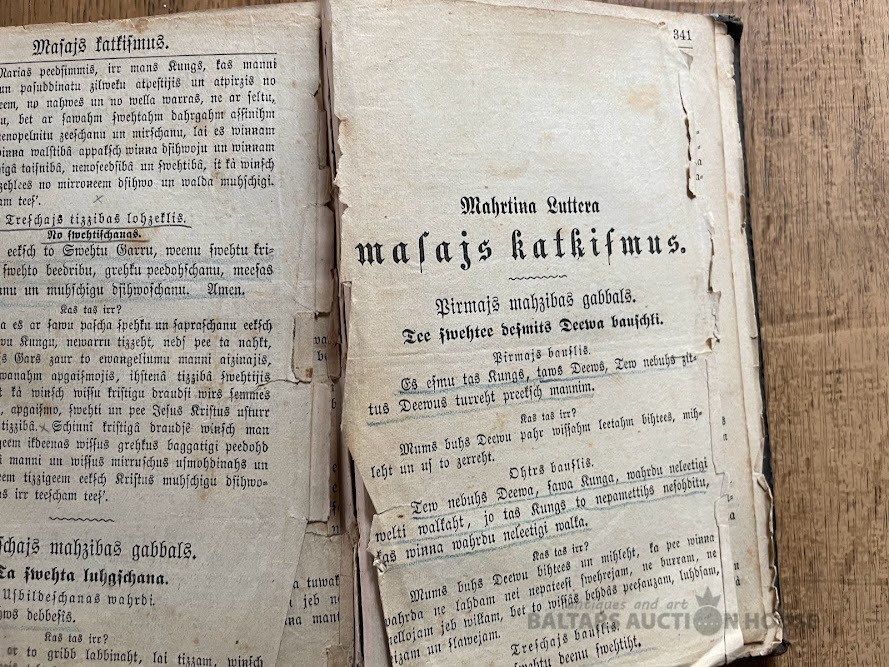 Masajs katkismus.
Marias peedsimmis, irr mans Kungs, kas manni
un pasuddinatu zilweku atpestijis un atpirzis no
no nahwes un no wella warras, ne ar seltu,
bet ar sawahm swehtahm dahrgahm assinihm
zeeschanu un mirschanu, lai es winnam
walstibâ appaksch winna dsihwoju un winnam
taisnibâ, nenoseedsibâ un swehtibâ, it kà winsch
no mirroneem dsihwo un walda muhschigi.
tees'.
Treschajs tizzibas lohzeklis.
No swehtischanas.
eeksch to Swehtu Garru, weenu swehtu kri-
swehto beedribu, grehku peedohschanu, meesas
un muhschigu dsihwoschanu. Amen.
Kas tas irr?
a es ar sawu pascha spehku un sapraschanu eeksch
Kungu, newarru tizzeht, neds pee ta nahkt,
Gars zaur to ewangeliumu manni aizinajis,
apgaismojis, ihstenâ tizzibâ swehtijis
kà winsch wissu kristigu draudsi wirs semmes
apgaismo, swehti un pee Jesus Kristus usturr
tizzibâ. Schinnî kristigâ draudsê winsch man
ikdeenas wissus grehkus baggatigi peedohd
manni un wissus mirruschus usmohdinahs un
tizzigeem eeksch Kristus muhschigu dsihwo-
irr teescham tees'.
mahzibas gabbals.
Ta swehta luhgschana.
Usbildeschanas wahrdi.
debbesis.
Kas tas irr?
ar to gribb labbinaht, lai tizzam, winsch
341
Mahrtina Luttera
masajs katkismus.
Pirmajs mahzibas gabbals.
Tee swehtee desmits Deewa bauschli.
Pirmajs bauslis.
Es esmu tas Kungs, taws Deews, Tew nebuhs zit-
tus Deewus turreht preeksch mannim.
Kas tas irr?
Mums buhs Deewu pahr wissahm leetahm bihtees, mih-
leht un us to zerreht.
Ohtrs bauslis.
Tew nebuhs Deewa, sawa Kunga, wahrdu neleetigi
welti walkaht, jo tas Kungs to nepamettihs nesohditu,
kas winna wahrdu neleetigi walka.
Kas tas irr?
Mums buhs Deewu bihtees un mihleht, ka pee winna
wahrda ne lahdam nei nepateesi swehrejam, ne burram, ne
mellojam jeb willam, bet to wissâs behdâs peesauzam, luhdsam,
teizam un slawejam.
Treschajs bauslis.
deenu swehtiht.
antiques and art
BALTARS AUCTION HOUSE